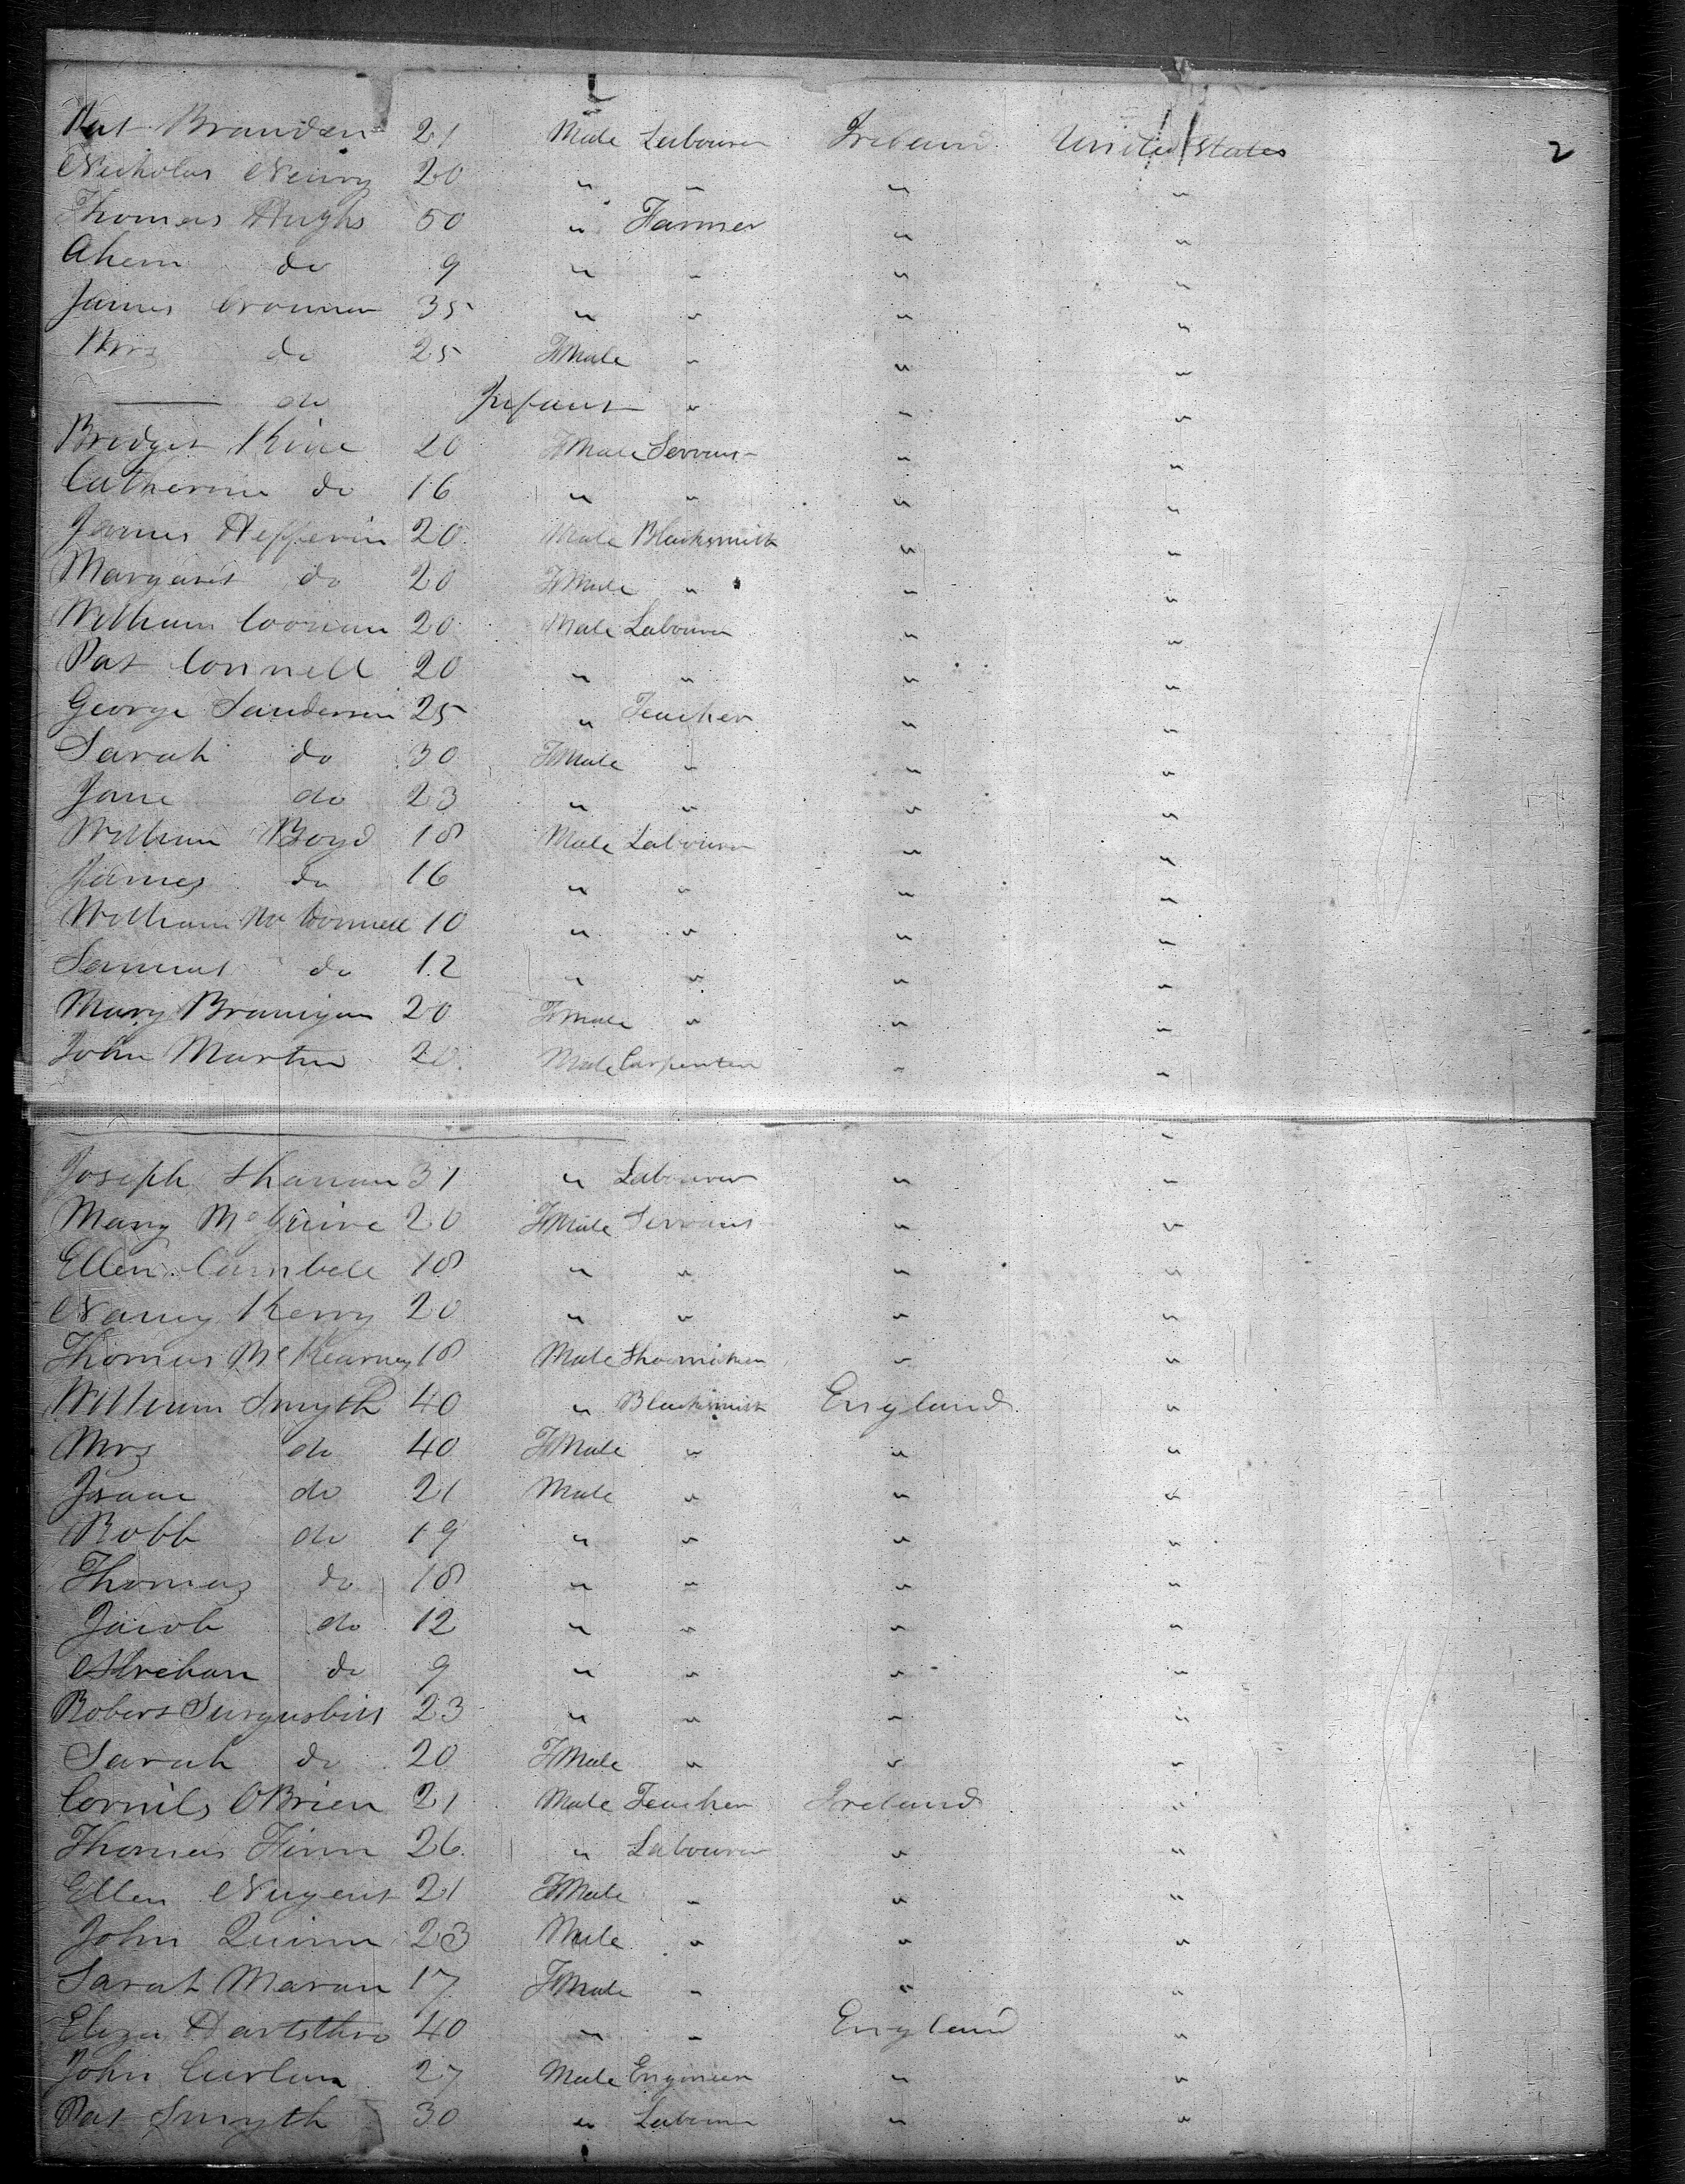 Pat Branden 21 Male Labourer Ireland United States 2
Nicholas Newry 20 " " " "
Thomas Hughs 50 " Farmer " "
Ahern do 9 " " " "
James Cronnen 35 " " " "
Mrs do 25 FMale " " "
— do Infant " " "
Bridget Kine 20 FMale Servant " "
Catherine do 16 " " " "
James Heffernin 20 Male Blacksmith " "
Margaret do 20 FMale " " "
William Coonan 20 Male Labourer " "
Pat Connell 20 " " " "
George Sanderson 25 " Teacher " "
Sarah do 30 FMale " " "
Jane do 23 " " " "
William Boyd 18 Male Labourer " "
James do 16 " " " "
William Mc Connell 10 " " " "
Samuel do 12 " " " "
Mary Branigan 20 FMale " " "
John Martin 20 Male Carpenter " "
"
Joseph Shanan 31 " Labourer " "
Mary McGuire 20 FMale Servant " "
Ellen Cambell 18 " " " "
Nancy Kerry 20 " " " "
Thomas McKearney 18 Male Shoemaker " "
William Smyth 40 " Blacksmith England "
Mrs do 40 FMale " " "
Isaac do 21 Male " " "
Robb do 19 " " " "
Thomas do 18 " " " "
Jacob do 12 " " " "
do 9 " " " "
Robert 23 " " " "
Sarah do 20 FMale " " "
Cornils OBrien 21 Male Teacher Ireland "
Thomas Finn 26 " Labourer " "
Ellen Nugent 21 FMale " " "
John Quinn 23 Male " " "
Sarah Maran 17 FMale " " "
Eliza 40 " " England "
John Curlan 27 Male Engineer " "
Pat Smyth 30 " Labourer " "